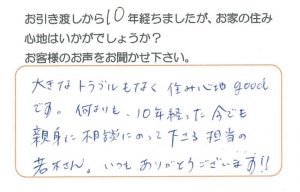 お引き渡しから10年経ちましたが、お家の住み
心地はいかがでしょうか？
お客様のお声をお聞かせ下さい。
大きなトラブルもなく住み心地good
です。何よりも、10年経った今でも
親身に相談にのって下さる担当の
若木さん。いつもありがとうございます!!